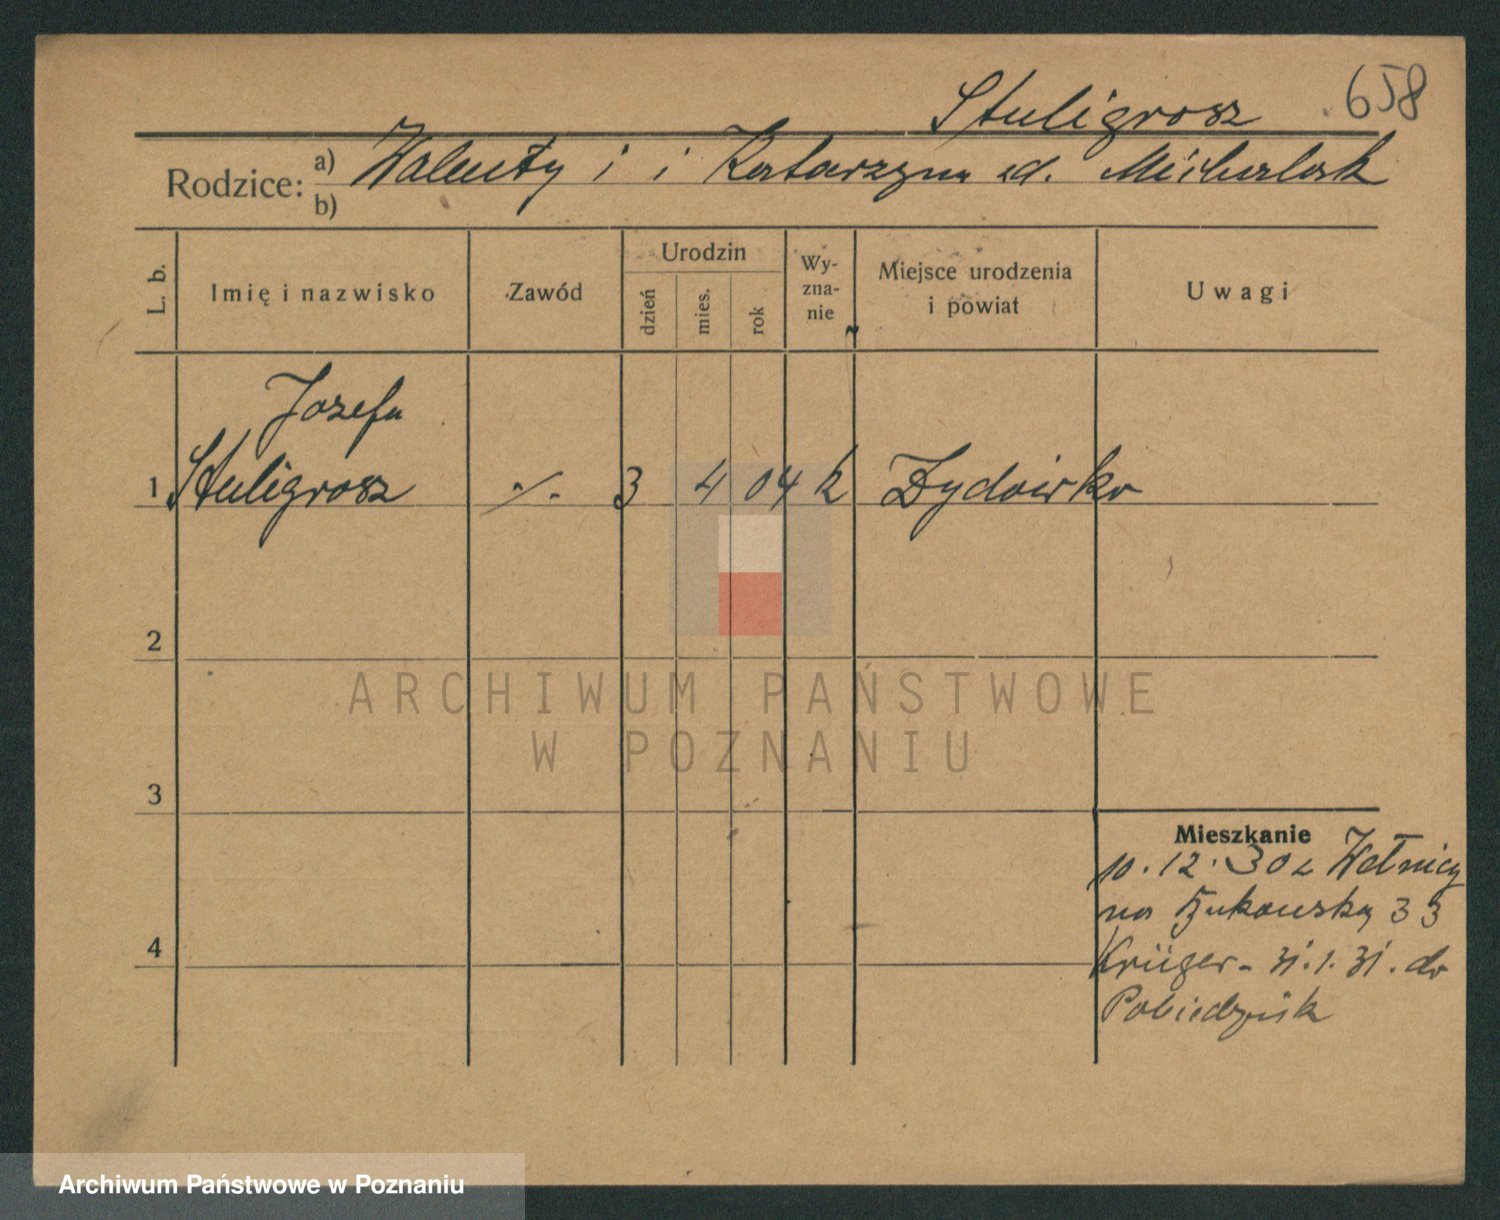 658
Stuligrosz
Rodzice: a) Walenty i i Katarzyna d. Michalak
b)
L. b.
Imię i nazwisko
Zawód
Urodzin
dzień
mies.
rok
Wy-
zna-
nie
Miejsce urodzenia
i powiat
Uwagi
Józefa
1 Stuligrosz -/- 3 4 04 k Żydówko
2
3
4
Mieszkanie
10.12.30 z Wełnicy
na 33
Krüger - 31.1.31. do
Pobiedzisk
ARCHIWUM PAŃSTWOWE
W POZNANIU
Archiwum Państwowe w Poznaniu